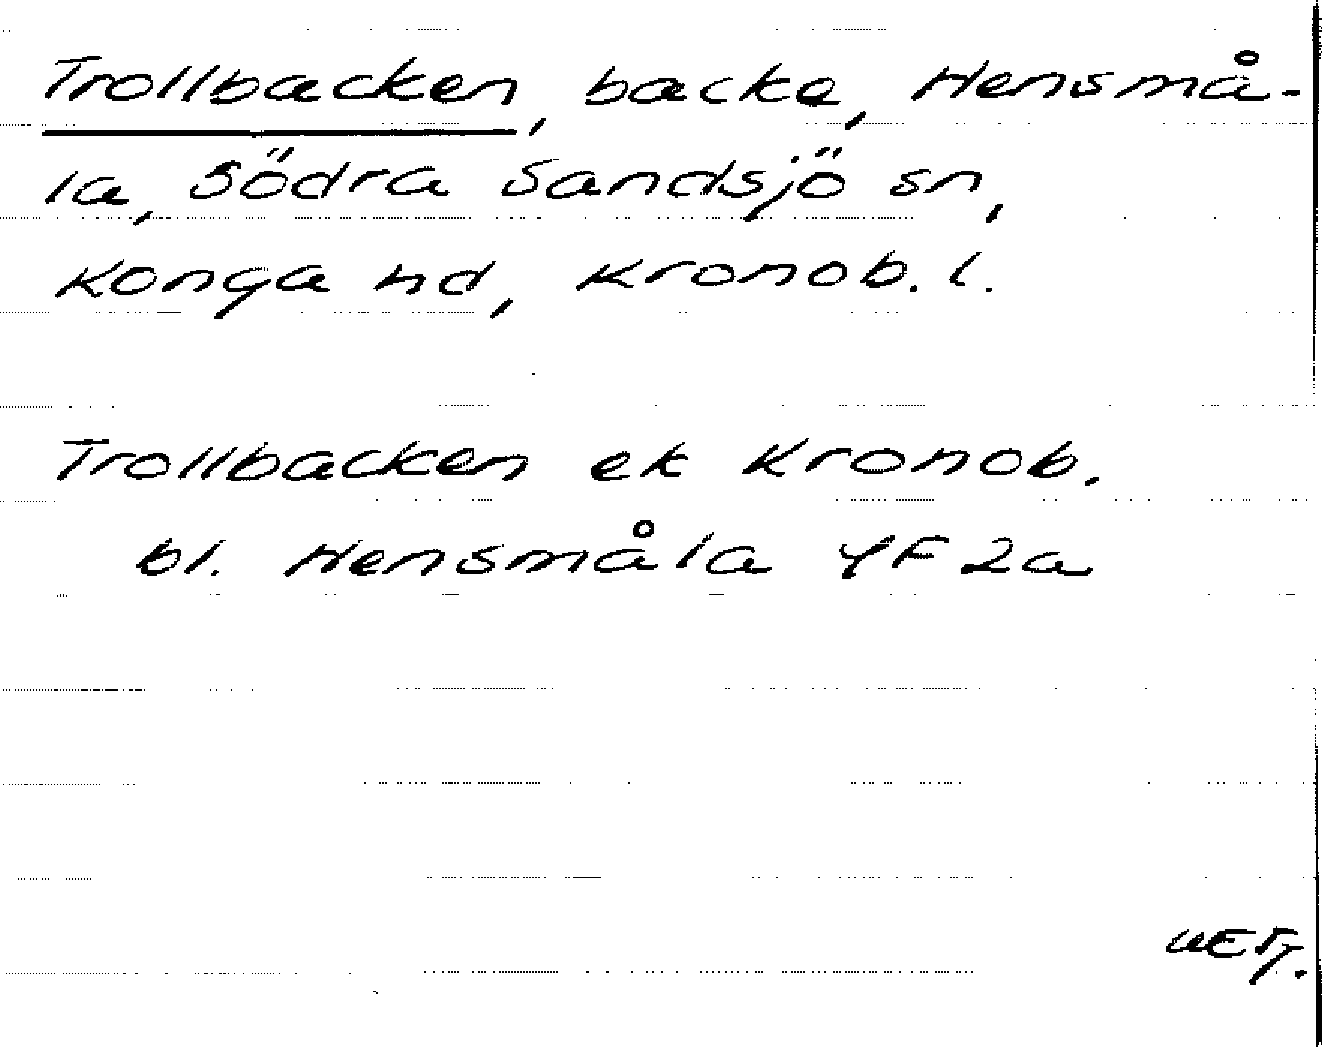 Trollbacken, backe, Hensmå-
la, Södra Sandsjö sn,
Konga hd, Kronob. l.
Trollbacken ek Kronob.
bl. Hensmåla 4F 2a